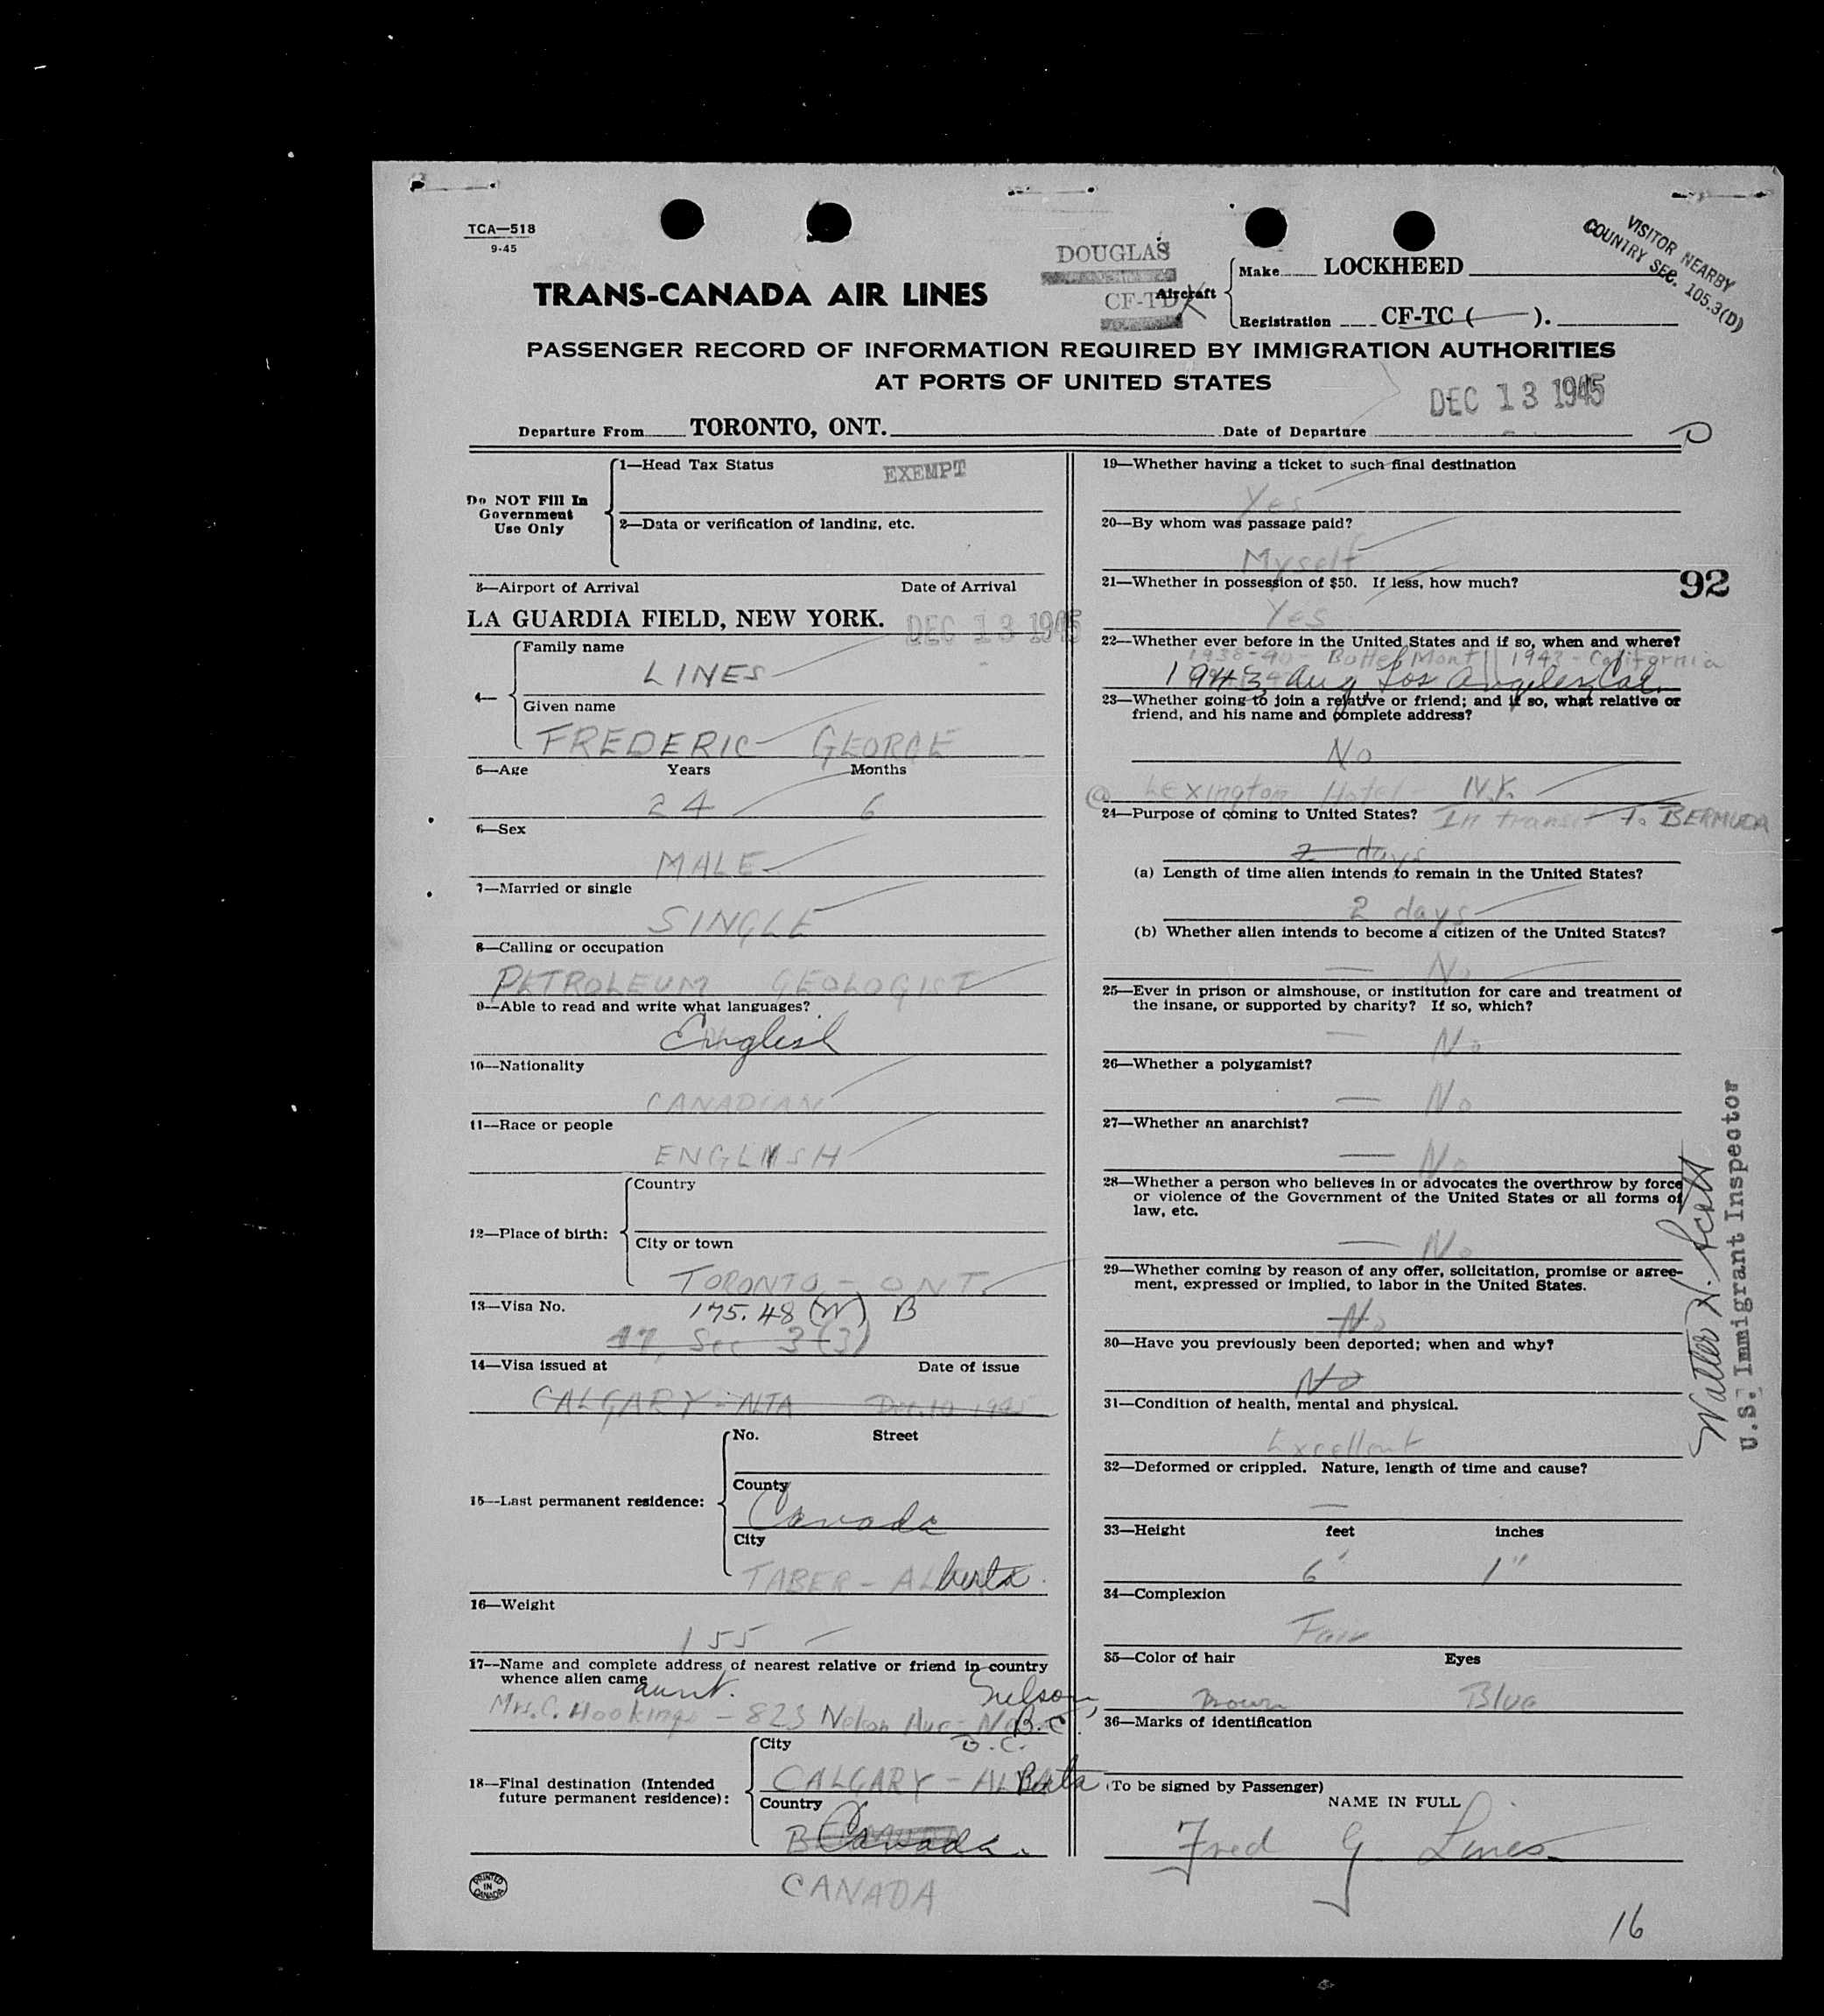 TCA—518
9-45
VISITOR NEARBY
COUNTRY SEC. 105.3(D)
DOUGLAS
CF-TD
TRANS-CANADA AIR LINES
Aircraft
Make LOCKHEED
Registration CF-TC ( ).
PASSENGER RECORD OF INFORMATION REQUIRED BY IMMIGRATION AUTHORITIES
AT PORTS OF UNITED STATES
DEC 13 1945
Departure From TORONTO, ONT. Date of Departure
Do NOT Fill In
Government
Use Only
1—Head Tax Status EXEMPT
2—Data or verification of landing, etc.
3—Airport of Arrival Date of Arrival
LA GUARDIA FIELD, NEW YORK. DEC 13 1945
4—
Family name
LINES
Given name
FREDERIC GEORGE
5—Age Years Months
24 6
6—Sex
MALE
7—Married or single
SINGLE
8—Calling or occupation
PETROLEUM GEOLOGIST
9—Able to read and write what languages?
English
10—Nationality
CANADIAN
11—Race or people
ENGLISH
12—Place of birth:
Country
City or town
TORONTO - ONT.
13—Visa No. 175.48 (W) B
17, Sec 3 (3)
14—Visa issued at Date of issue
CALGARY - ALTA Dec. 10 1945
15—Last permanent residence:
No. Street
County
Canada
City
TABER - ALberta.
16—Weight
155
17—Name and complete address of nearest relative or friend in country
whence alien came
aunt. Nelson,
Mrs. C. Hookings - 823 Nelson Ave - B.C.
B.C.
18—Final destination (Intended
future permanent residence):
City
CALGARY - ALBerta
Country
Canada.
CANADA
PRINTED
IN
CANADA
19—Whether having a ticket to such final destination
Yes
20—By whom was passage paid?
Myself
21—Whether in possession of $50. If less, how much?
92
Yes
22—Whether ever before in the United States and if so, when and where?
1938-40 - Butte, Mont 1943 - California
1943 Aug Los Angeles, Cal.
23—Whether going to join a relative or friend; and if so, what relative or
friend, and his name and complete address?
No
@ Lexington Hotel - N.Y.
24—Purpose of coming to United States? In transit To BERMUDA
2 days
(a) Length of time alien intends to remain in the United States?
2 days
(b) Whether alien intends to become a citizen of the United States?
— No
25—Ever in prison or almshouse, or institution for care and treatment of
the insane, or supported by charity? If so, which?
— No
26—Whether a polygamist?
— No
27—Whether an anarchist?
— No
28—Whether a person who believes in or advocates the overthrow by force
or violence of the Government of the United States or all forms of
law, etc.
— No
29—Whether coming by reason of any offer, solicitation, promise or agree-
ment, expressed or implied, to labor in the United States.
No
30—Have you previously been deported; when and why?
No
31—Condition of health, mental and physical.
Excellent
32—Deformed or crippled. Nature, length of time and cause?
—
33—Height feet inches
6' 1"
34—Complexion
Fair
35—Color of hair Eyes
Brown Blue
36—Marks of identification
(To be signed by Passenger)
NAME IN FULL
Fred G. Lines
16
Walter H. Scott
U.S. Immigrant Inspector